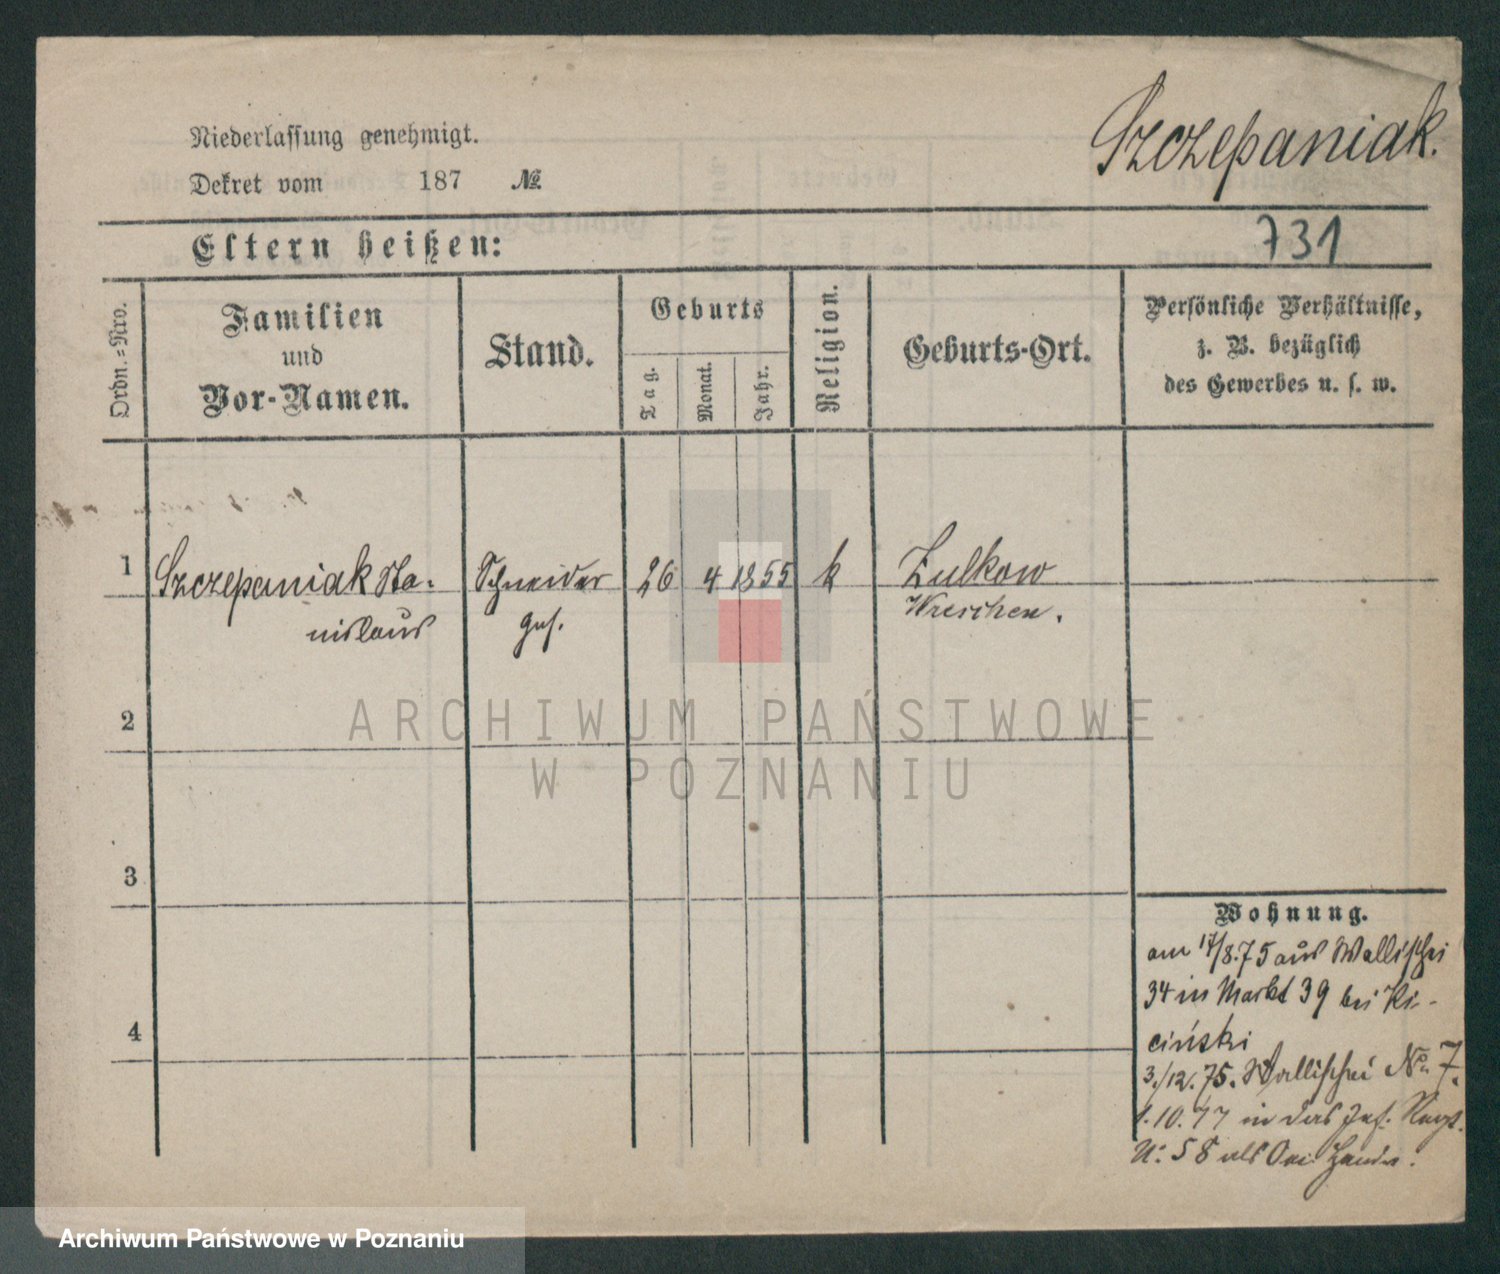 Szczepaniak.
Niederlassung genehmigt.
Dekret vom 187 №
731
Eltern heißen:
Ordn.=Nro.
Familien
und
Vor-Namen.
Stand.
Geburts
Tag.
Monat.
Jahr.
Religion.
Geburts-Ort.
Persönliche Verhältnisse,
z. B. bezüglich
des Gewerbes u. s. w.
1 Szczepaniak Sta- Schneider 26 4 1855 k Zulkow
nislaus ges. Wreschen.
2
3
4
Wohnung.
am 17/8.75 aus Wallischei
34 in Markt 39 bei Ki-
ciński
3./12.75. Wallischei No. 7.
1.10.77 in das Inf. Regt.
N: 58 als
ARCHIWUM PAŃSTWOWE
W POZNANIU
Archiwum Państwowe w Poznaniu